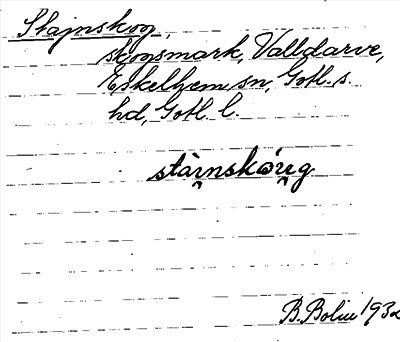 Stajnskog,
skogsmark, Valldarve,
Eskelhem sn, Gotl. s.
hd, Gotl. l.
stàı̯nskó̀u̯g
B. Bolin 1932